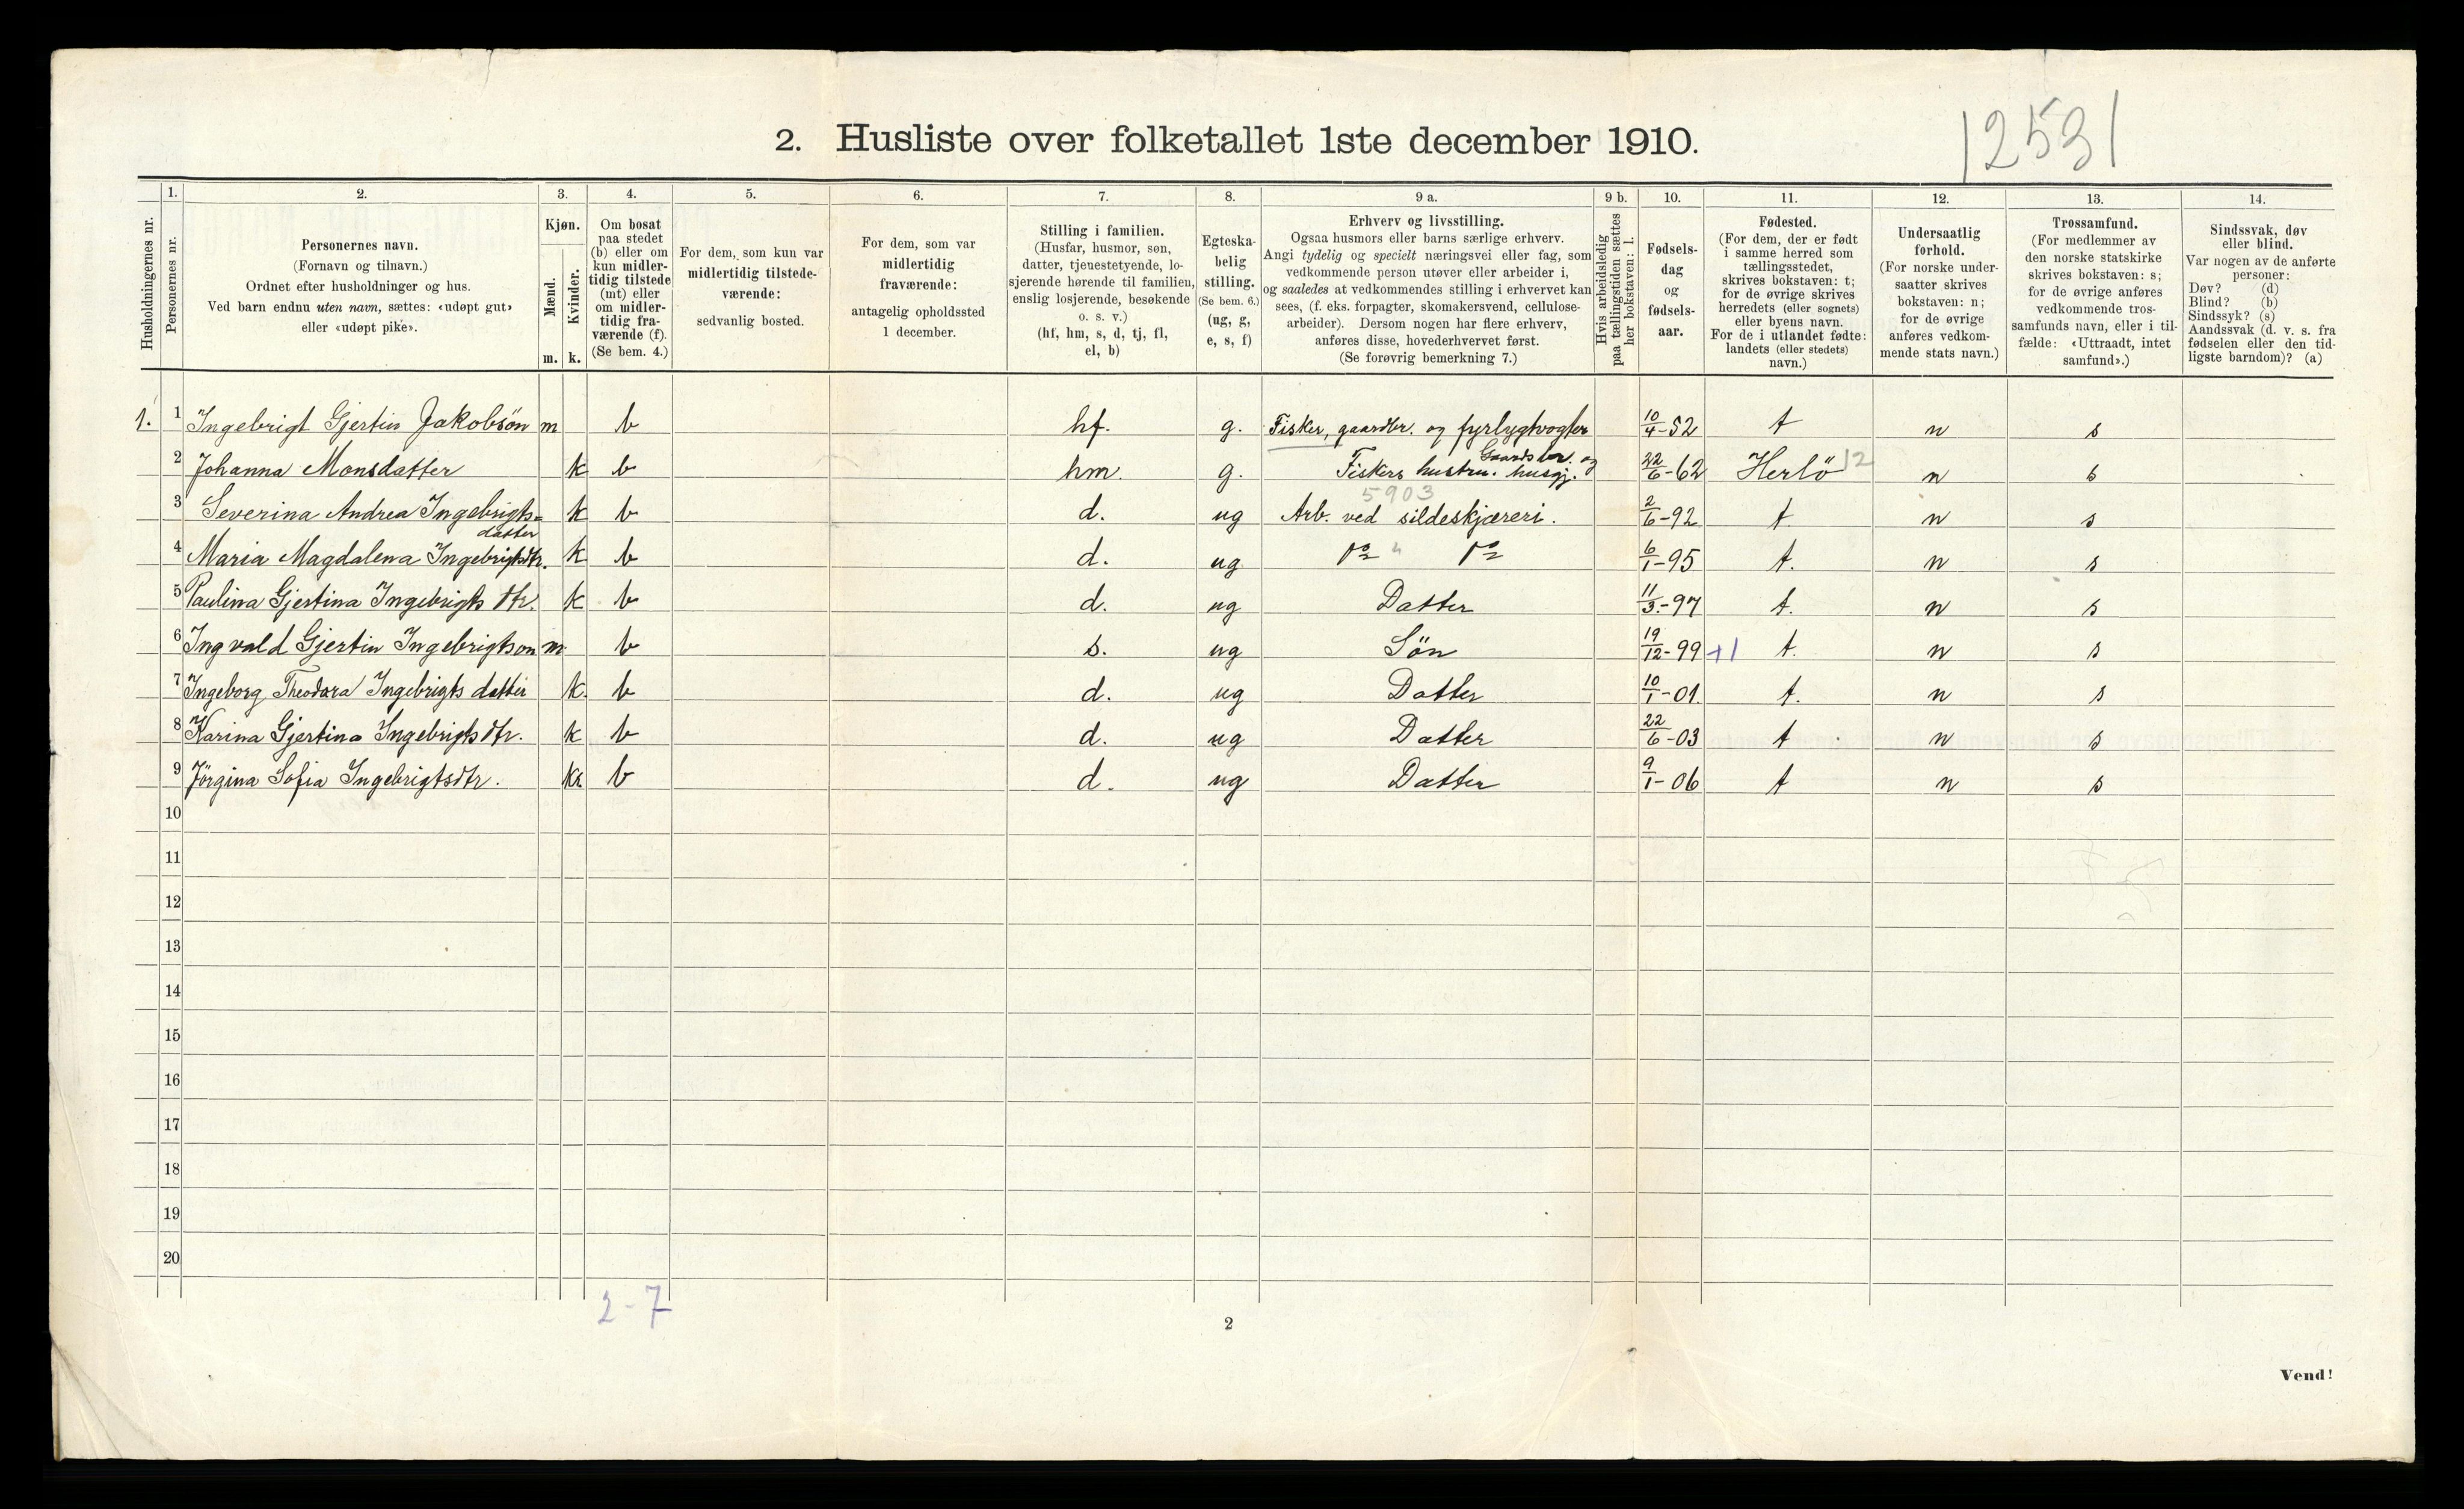 12531
2. Husliste over folketallet 1ste december 1910.
Husholdningernes nr.
1.
Personernes nr.
2.
Personernes navn.
(Fornavn og tilnavn.)
Ordnet efter husholdninger og hus.
Ved barn endnu uten navn, sættes: «udøpt gut»
eller «udøpt pike».
3.
Kjøn.
Mænd.
m.
Kvinder.
k.
4.
Om bosat
paa stedet
(b) eller om
kun midler-
tidig tilstede
(mt) eller
om midler-
tidig fra-
værende (f).
(Se bem. 4.)
5.
For dem, som kun var
midlertidig tilstede-
værende:
sedvanlig bosted.
6.
For dem, som var
midlertidig
fraværende:
antagelig opholdssted
1 december.
7.
Stilling i familien.
(Husfar, husmor, søn,
datter, tjenestetyende, lo-
sjerende hørende til familien,
enslig losjerende, besøkende
o. s. v.)
(hf, hm, s, d, tj, fl,
el, b)
8.
Egteska-
belig
stilling.
(Se bem. 6.)
(ug, g,
e, s, f)
9 a.
Erhverv og livsstilling.
Ogsaa husmors eller barns særlige erhverv.
Angi tydelig og specielt næringsvei eller fag, som
vedkommende person utøver eller arbeider i,
og saaledes at vedkommendes stilling i erhvervet kan
sees, (f. eks. forpagter, skomakersvend, cellulose-
arbeider). Dersom nogen har flere erhverv,
anføres disse, hovederhvervet først.
(Se forøvrig bemerkning 7.)
9 b.
Hvis arbeidsledig
paa tællingstiden sættes
her bokstaven: l.
10.
Fødsels-
dag
og
fødsels-
aar.
11.
Fødested.
(For dem, der er født
i samme herred som
tællingsstedet,
skrives bokstaven: t;
for de øvrige skrives
herredets (eller sognets)
eller byens navn.
For de i utlandet fødte:
landets (eller stedets)
navn.)
12.
Undersaatlig
forhold.
(For norske under-
saatter skrives
bokstaven: n;
for de øvrige
anføres vedkom-
mende stats navn.)
13.
Trossamfund.
(For medlemmer av
den norske statskirke
skrives bokstaven: s;
for de øvrige anføres
vedkommende tros-
samfunds navn, eller i til-
fælde: «Uttraadt, intet
samfund».)
14.
Sindssvak, døv
eller blind.
Var nogen av de anførte
personer:
Døv? (d)
Blind? (b)
Sindssyk? (s)
Aandssvak (d. v. s. fra
fødselen eller den tid-
ligste barndom)? (a)
1. 1 Ingebrigt Gjertin Jakobsön m b hf. g. Fisker, gaardbr. og fyrlygtvogter 10/4-52 t n s
2 Johanna Monsdatter k b hm. g. Fiskers hustru. Gaardsbr. og husgj. 22/6-62 Herlö 12 n s
5903
3 Severina Andrea Ingebrigts= datter k b d. ug Arb. ved sildeskjæreri. 2/6-92 t n s
4 Maria Magdalena Ingebrigtsdtr. k b d. ug Do " Do 6/1-95 t. n s
5 Paulina Gjertina Ingebrigts dtr. k b d. ug Datter 11/3.-97 t. n s
6 Ingvald Gjertin Ingebrigtson m b s. ug Sön 19/12-99 +1 t. n s
7 Ingeborg Theodora Ingebrigts datter k. b d. ug Datter 10/1-01. t. n s
8 Karina Gjertina Ingebrigtsdtr. k b d. ug Datter 22/6-03 t n s
9 Jörgina Sofia Ingebrigtsdtr. k. b d. ug Datter 9/1-06 t n s
10
11
12
13
14
15
16
17
18
19
20
2-7
2
Vend!